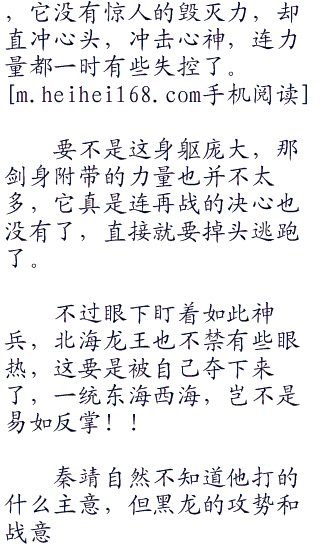 ，它没有惊人的毁灭力，却
直冲心头，冲击心神，连力
量都一时有些失控了。
[m.heihei168.com手机阅读]
要不是这身躯庞大，那
剑身附带的力量也并不太
多，它真是连再战的决心也
没有了，直接就要掉头逃跑
了。
不过眼下盯着如此神
兵，北海龙王也不禁有些眼
热，这要是被自己夺下来
了，一统东海西海，岂不是
易如反掌！！
秦靖自然不知道他打的
什么主意，但黑龙的攻势和
战意